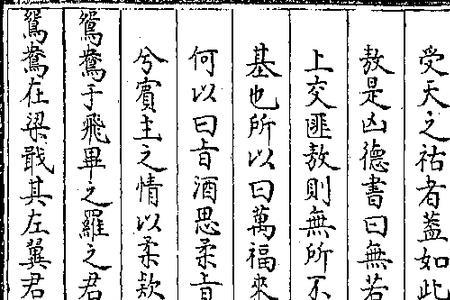 受天之祜者葢如此
敖是凶德書曰無若
上交匪敖則無所不
基也所以曰萬福來
何以曰旨酒思柔旨
兮賓主之情以柔欵
鴛鴦于飛畢之羅之君
鴛鴦在梁戢其左翼君